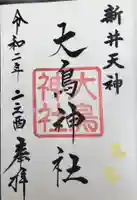 新井天神
天鳥神社
大鳥神社
令和二年 二ノ酉
奉拝